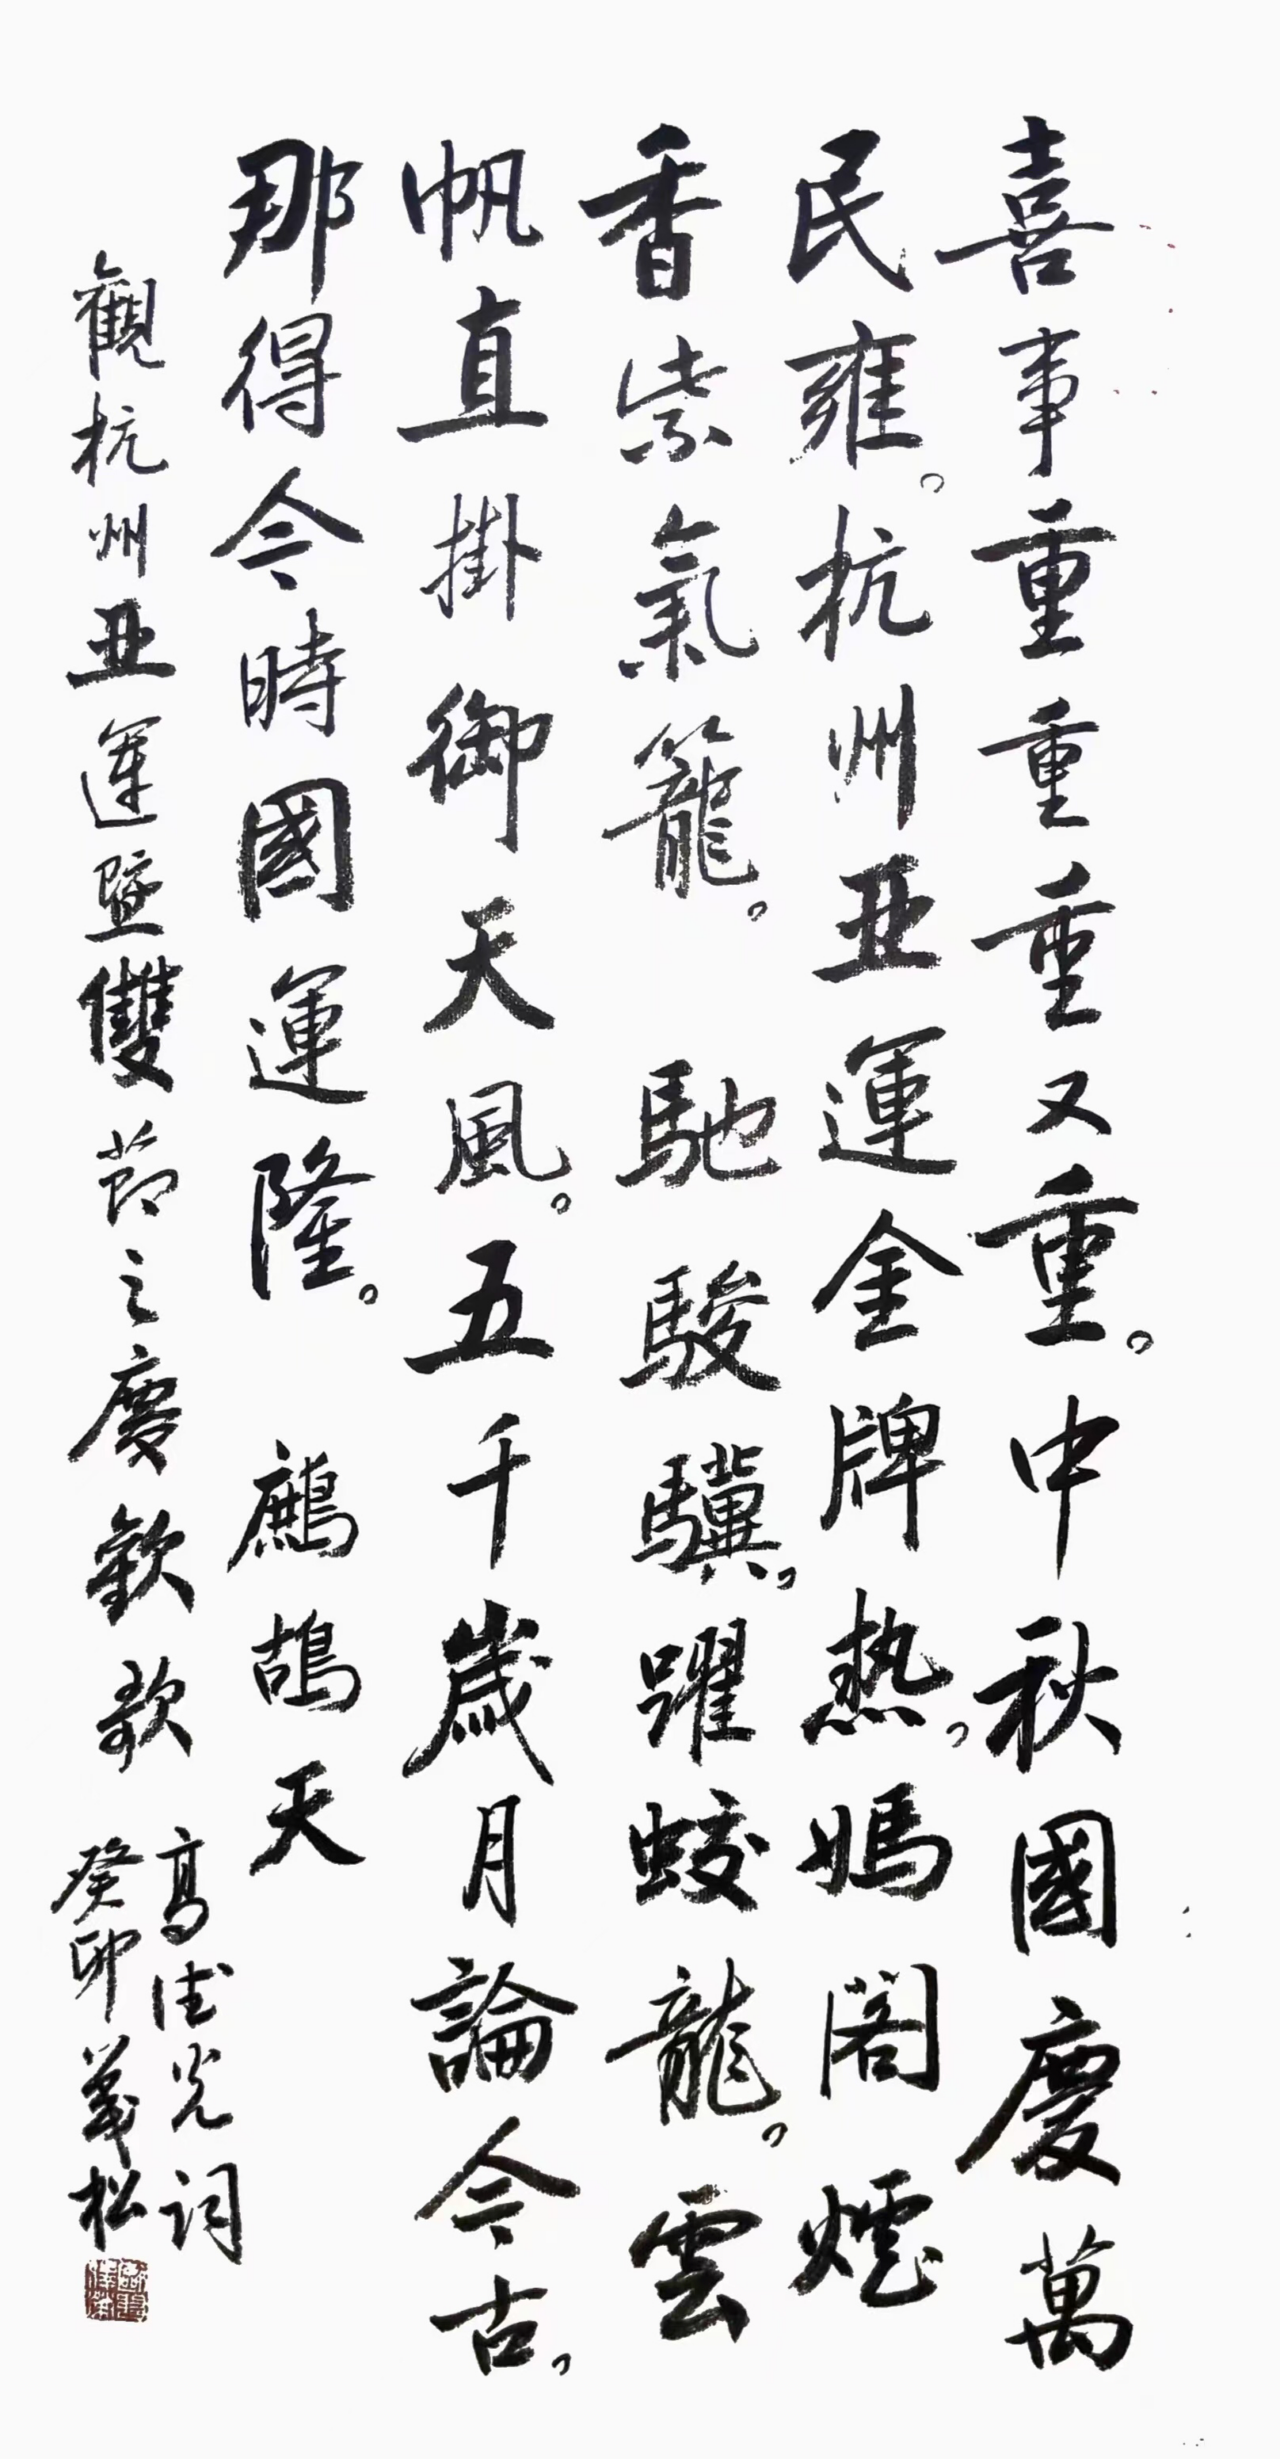 喜事重重重又重。中秋國慶萬
民雍。杭州亚運金牌热。媽閣煙
香紫氣籠。馳駿驥，躍蛟龍。雲
帆直掛御天風。五千歲月論今古，
那得今時國運隆。鷓鴣天
觀杭州亚運暨雙节之慶歡歌
高德光词
癸卯義松